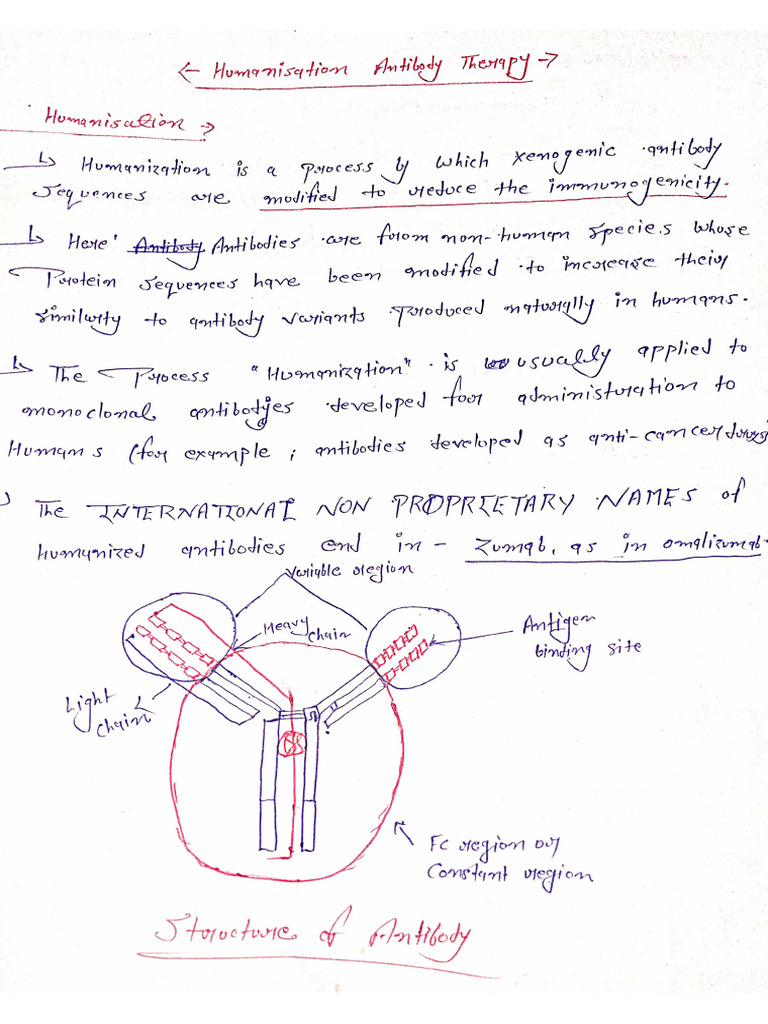 ← Humanisation Antibody Therapy →
Humanisation →
↳ Humanization is a process by which xenogenic antibody
sequences are modified to reduce the immunogenicity.
↳ Here' Antibody Antibodies are from non-human species whose
Protein sequences have been modified to increase their
similarity to antibody variants produced naturally in humans.
↳ The Process "Humanization" is usually applied to
monoclonal antibodies developed for administration to
Humans (for example ; antibodies developed as anti-cancer drugs)
The INTERNATIONAL NON PROPRIETARY NAMES of
humanized antibodies end in - zumab, as in omalizumab.
Variable region
Heavy chain
Antigen
binding site
Light
chain
Fc region or
Constant region
Structure of Antibody